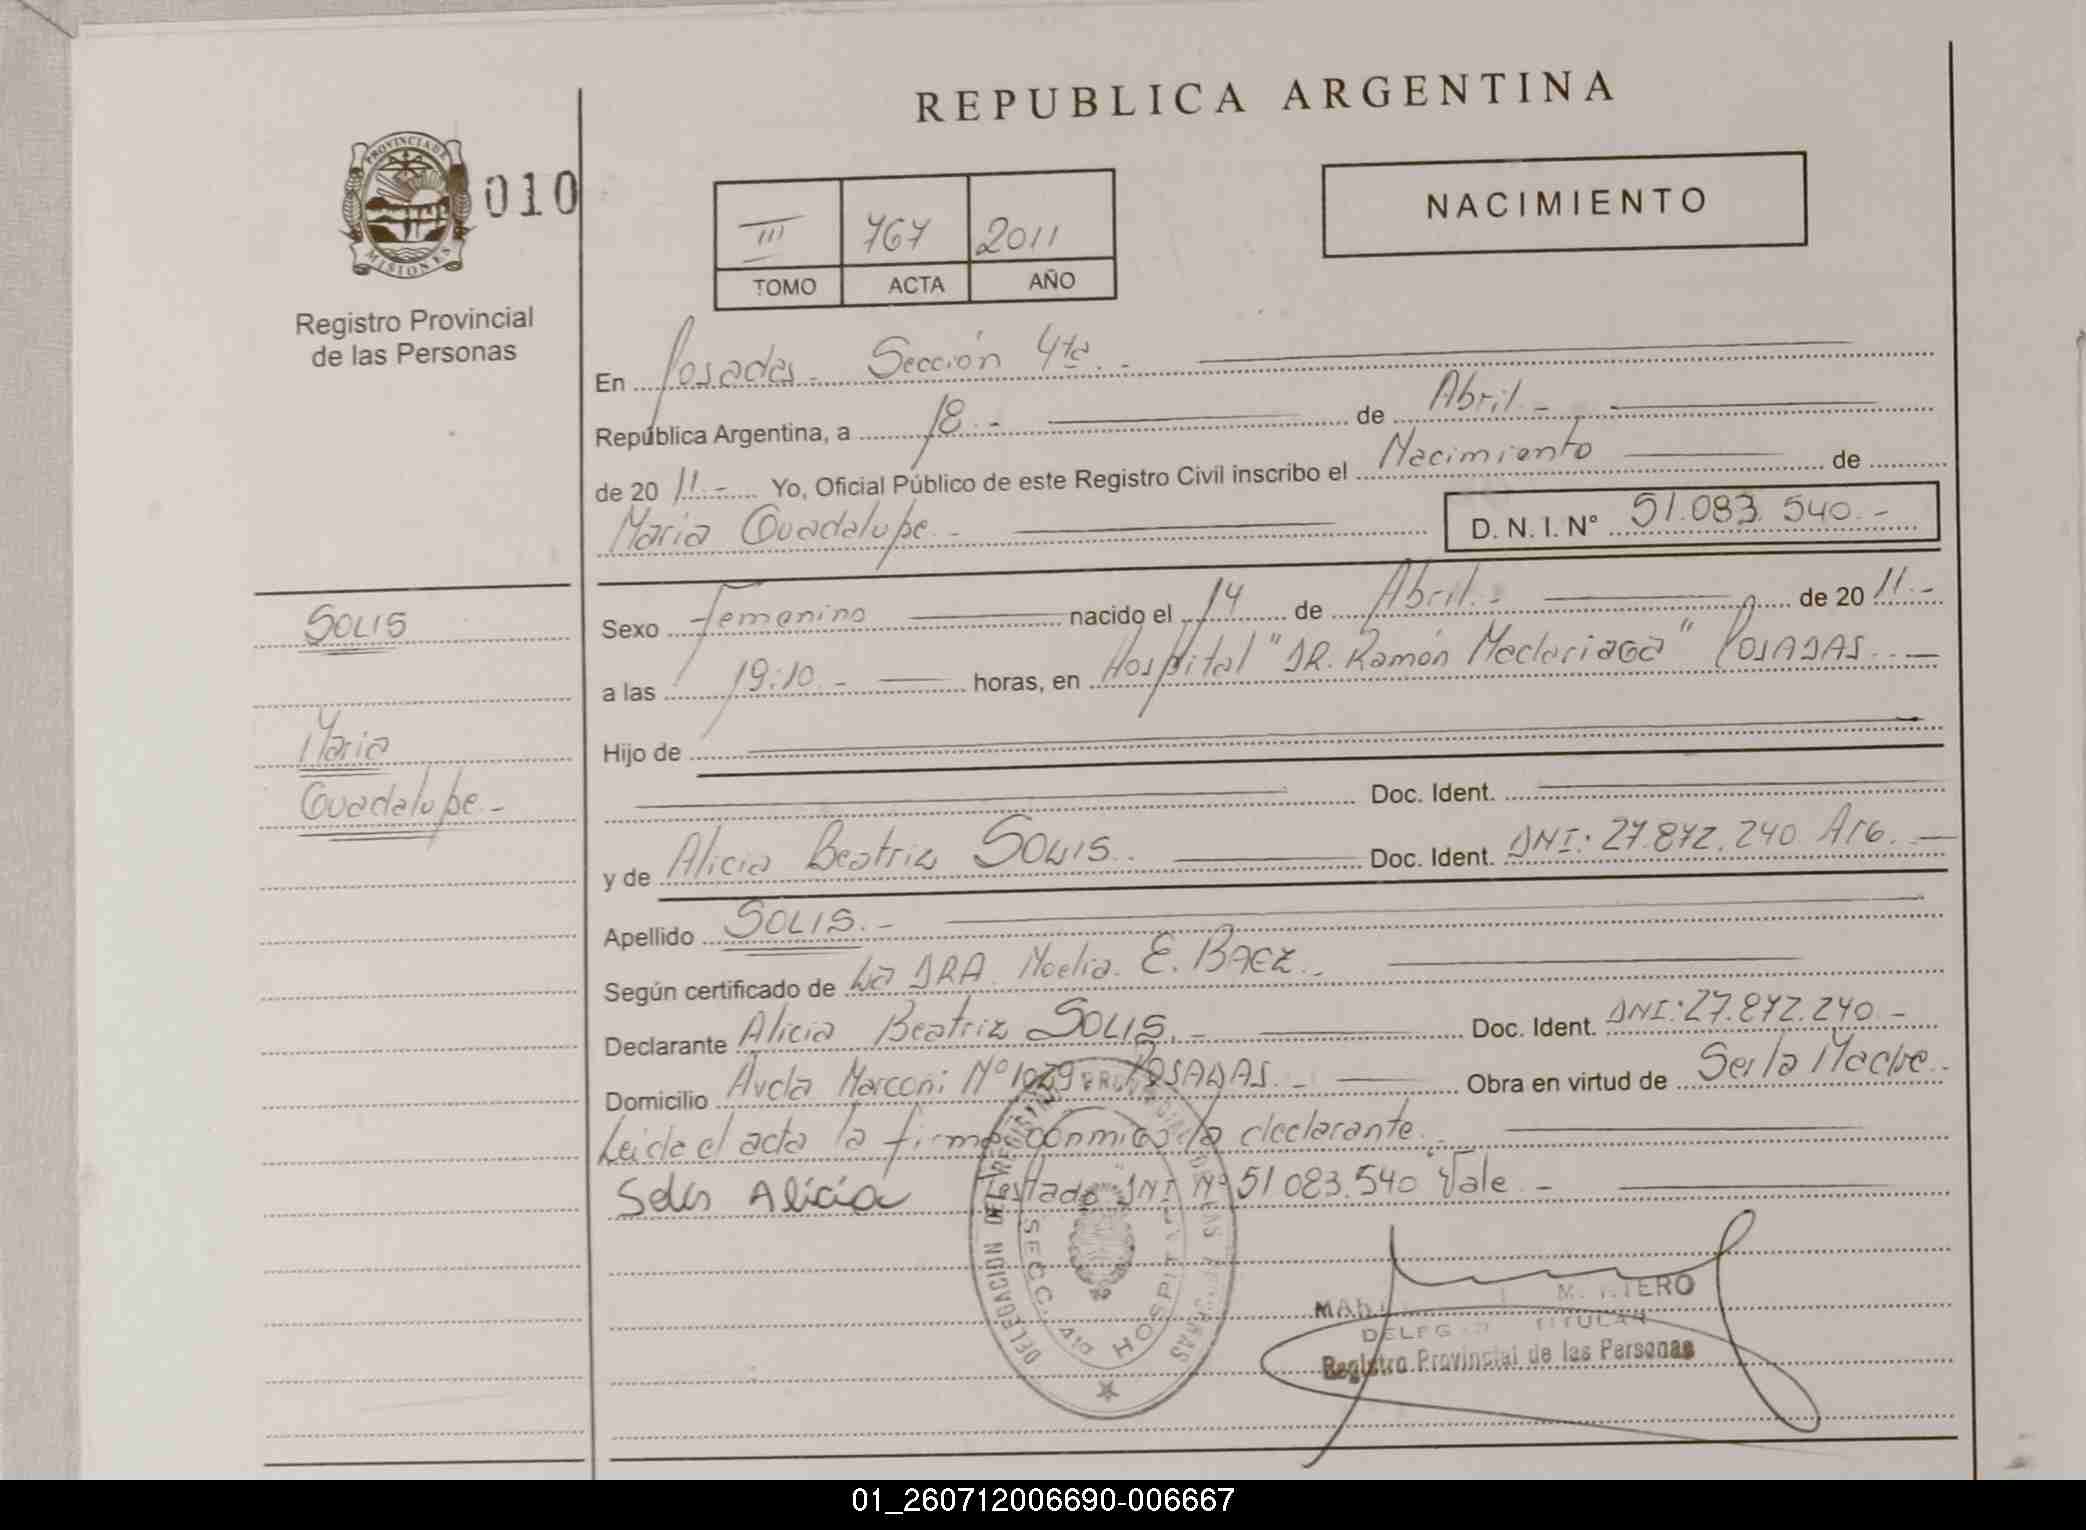 REPUBLICA ARGENTINA
PROVINCIA DE MISIONES
010
NACIMIENTO
III 767 2011
TOMO ACTA AÑO
Registro Provincial
de las Personas
En Posadas - Sección 4ta. -
República Argentina, a 18.- de Abril.-
de 2011.- Yo, Oficial Público de este Registro Civil inscribo el Nacimiento de
Maria Guadalupe.- D. N. I. N° 51.083.540.-
SOLIS
Maria
Guadalupe.-
Sexo Femenino nacido el 14 de Abril.- de 2011.-
a las 19:10.- horas, en Hospital "DR. Ramón Madariaga" POSADAS.-
Hijo de
Doc. Ident.
y de Alicia Beatriz SOLIS.. Doc. Ident. DNI: 27.872.240 Arg.-
Apellido SOLIS.-
Según certificado de La DRA. Noelia. E. BAEZ.-
Declarante Alicia Beatriz SOLIS.- Doc. Ident. DNI: 27.872.240.-
Domicilio Avda Marconi N° POSADAS.- Obra en virtud de Ser la Madre.-
Leida el acta la firma conmigo la declarante.-
Solis Alicia Testado DNI N° 51.083.540 Vale.-
DELEGACION DEL REGISTRO PROVINCIAL DE LAS PERSONAS
SECC. 4ta HOSPITAL
TITULAR
Registro Provincial de las Personas
01_260712006690-006667